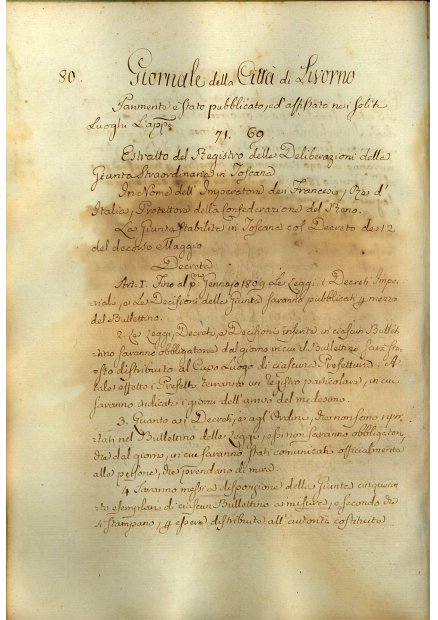 80. Giornale della Città di Livorno
Parimente è stato pubblicato, ed affissato nei soliti
Luoghi L'app:
71. 69
Estratto del Registro delle Deliberazioni della
Giunta Straordinaria in Toscana
In Nome dell'Imperatore dei Francesi, Re d'
Italia, Protettore della Confederazione del Reno.
La Giunta stabilita in Toscana col Decreto de 12
del decorso Maggio
Decreta
Art: I. Fino al p.º Gennajo 1809 Le Leggi, i Decreti Impe-
riali, e Le Decisioni della Giunta saranno pubblicati, p mezzo
del Bullettino.
2. Le Leggi, Decreti, e Decisioni inserite in ciascun Bullet-
tino saranno obbligatorie dal giorno in cui il Bullettino sarà sta-
to distribuito al Capo Luogo di ciascuna Prefettura; A
tale effetto i Prefetti terranno un registro particolare, in cui
saranno indicati i giorni dell'arrivo del medesimo.
3. Quanto ai Decreti, e agl'Ordini, che non sono ripor-
tati nel Bullettino delle Leggi, essi non saranno obbligatori,
che dal giorno, in cui saranno stati comunicati officialmente
alle persone, che prendano di mira.
4. Saranno messi a disposizione della Giunta cinquecen
to esemplari di ciascun Bullettino a misura, e secondo che
si stampano, p essere distribuite all'autorità costituite